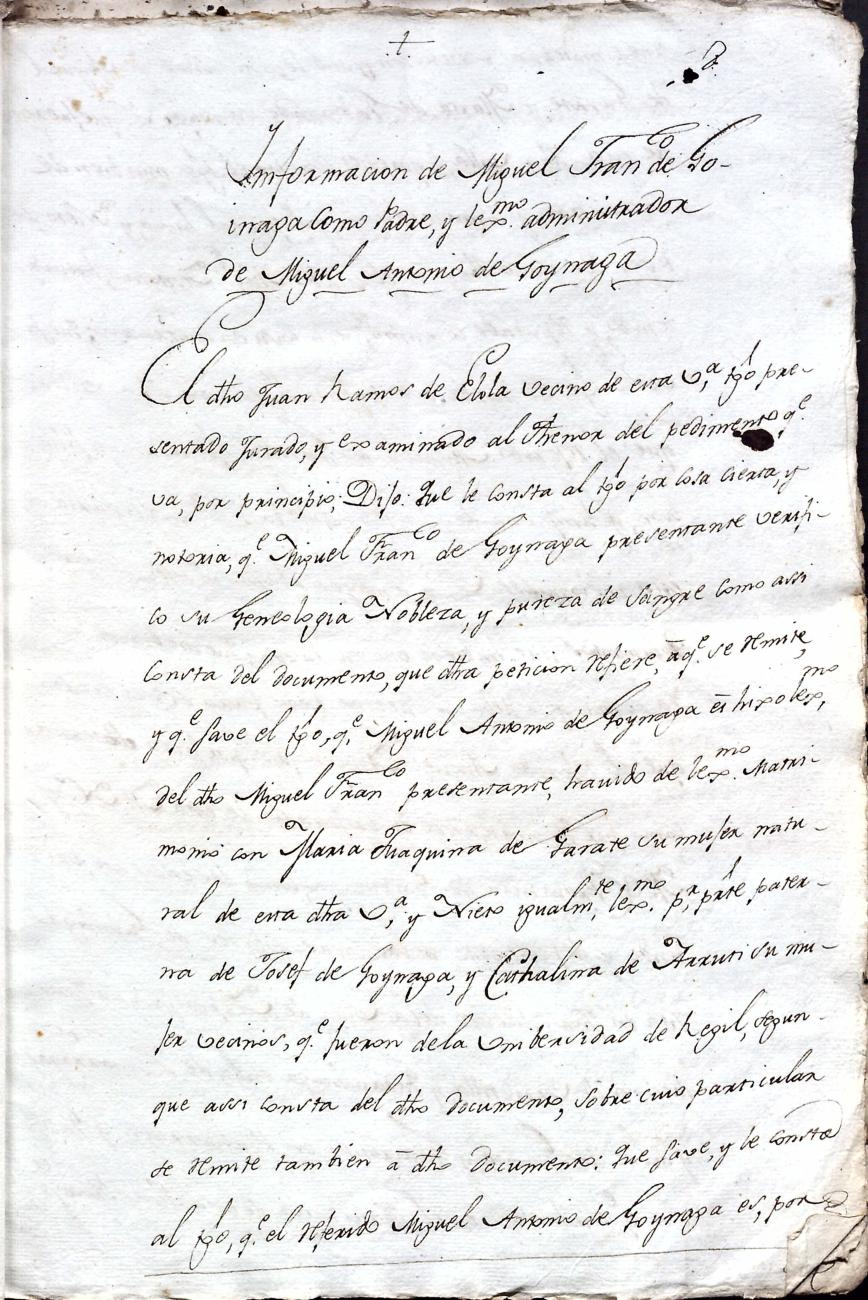 †
Informacion de Miguel Fran.co de Go-
inaga Como Padre, y lex.mo administrador
de Miguel Antonio de Goynaga
El dho Juan Ramos de Elola vecino de esta V.a tgo pre-
sentado Jurado, y examinado al Thenor del pedimento q.e
va, por principio; Dijo: Que le consta al tgo por cosa cierta, y
notoria, q.e Miguel Fran.co de Goynaga presentante verifi-
co su Geneologia Nobleza, y pureza de sangre como assi
consta del documento, que dha peticion refiere, â q.e se remite,
y q.e save el tgo, q.e Miguel Antonio de Goynaga es hixo lex.mo,
del dho Miguel Fran.co presentante, havido de lex.mo Matri-
monio con Maria Juaquina de Garate su mujer natu-
ral de esta dha V.a, y Nieto igualm.te lex.mo p.r prte pater-
na de Josef de Goynaga, y Cathalina de Arruti su mu-
jer vecinos, q.e fueron dela Unibersidad de Regil, segun
que assi consta del dho Documento, sobre cuio particular
se remite tambien â dho Documento: Que save, y le consta
al tgo, q.e el referido Miguel Antonio de Goynaga es, por